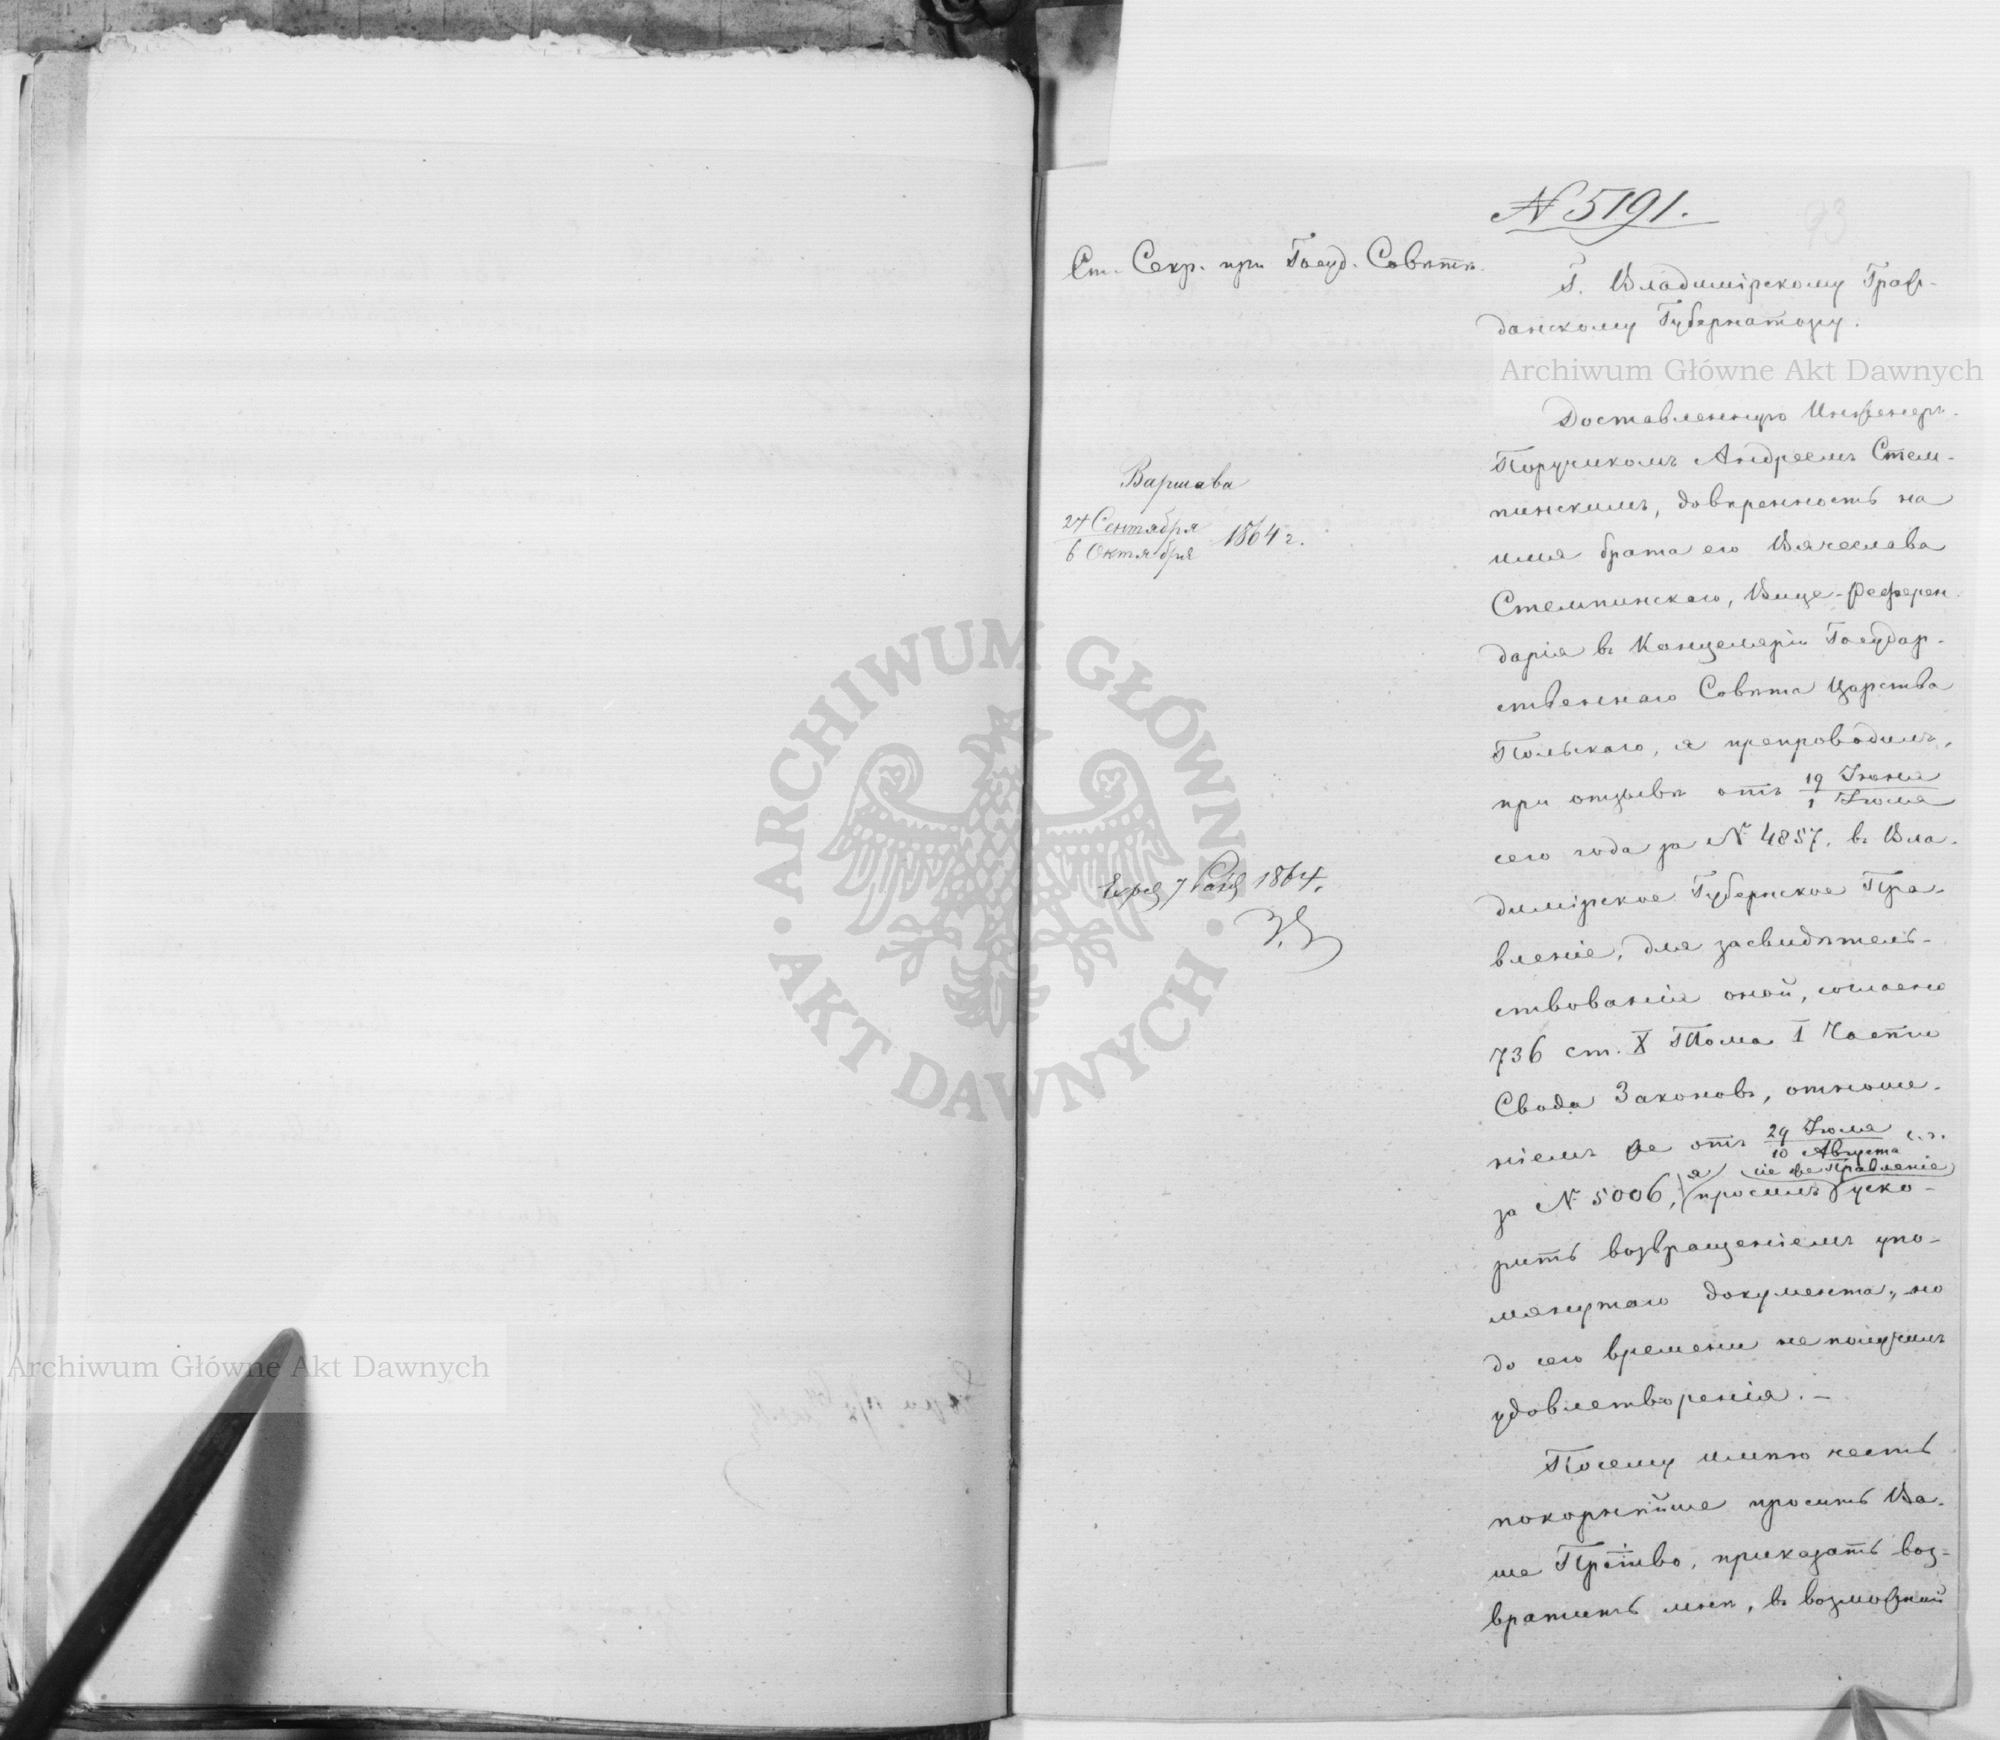 № 5191.
93
Ст. Секр. при Госуд. Совѣтѣ.
Г. Владимірскому Граж-
данскому Губернатору.
Archiwum Główne Akt Dawnych
Доставленную Инженеръ-
Поручикомъ Андреемъ Стем-
пинскимъ, довѣренность на
имя брата его Вячеслава
Стемпинскаго, Вице-Референ
дарія въ Канцеляріи Государ-
ственнаго Совѣта Царства
Польскаго, я препроводилъ,
при отзывѣ отъ 19 Іюня
1 Іюля
сего года за № 4857, въ Вла-
димірское Губернское Пра-
вленіе, для засвидѣтель-
ствованія оной, согласно
736 ст. X Тома I Части
Свода Законовъ, отноше-
ніемъ же отъ 29 Іюля с. г.
10 Августа
я сіе же Правленіе
за № 5006, просилъ уско-
рить возвращеніемъ упо-
мянутаго документа, но
до сего времени не получилъ
удовлетворенія. —
Посему имѣю честь
покорнѣйше просить Ва-
ше Пр-ство, приказать воз-
вратить мнѣ, въ возможной
Варшава
24 Сентября
6 Октября 1864 г.
7 1864.
ARCHIWUM GŁÓWNE
AKT DAWNYCH
Archiwum Główne Akt Dawnych